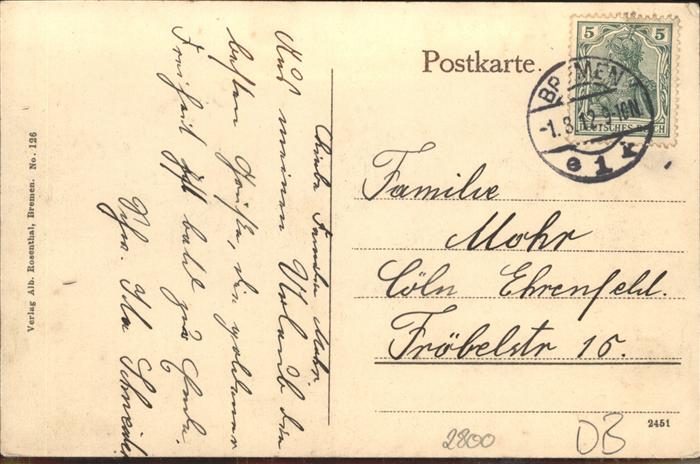 Postkarte.
5 5
DEUTSCHES REICH
BREMEN
-1.8.12.9-10N.
e 1 k
Familie
Mohr
Cöln Ehrenfeld.
Fröbelstr 15.
Liebe Familie Mohr.
Aus meinem Urlaub die
besten Grüße, die goldene
Freiheit geht bald zu Ende.
Ida Schneider
Verlag Alb. Rosenthal, Bremen. No. 126
2451
2800
DB